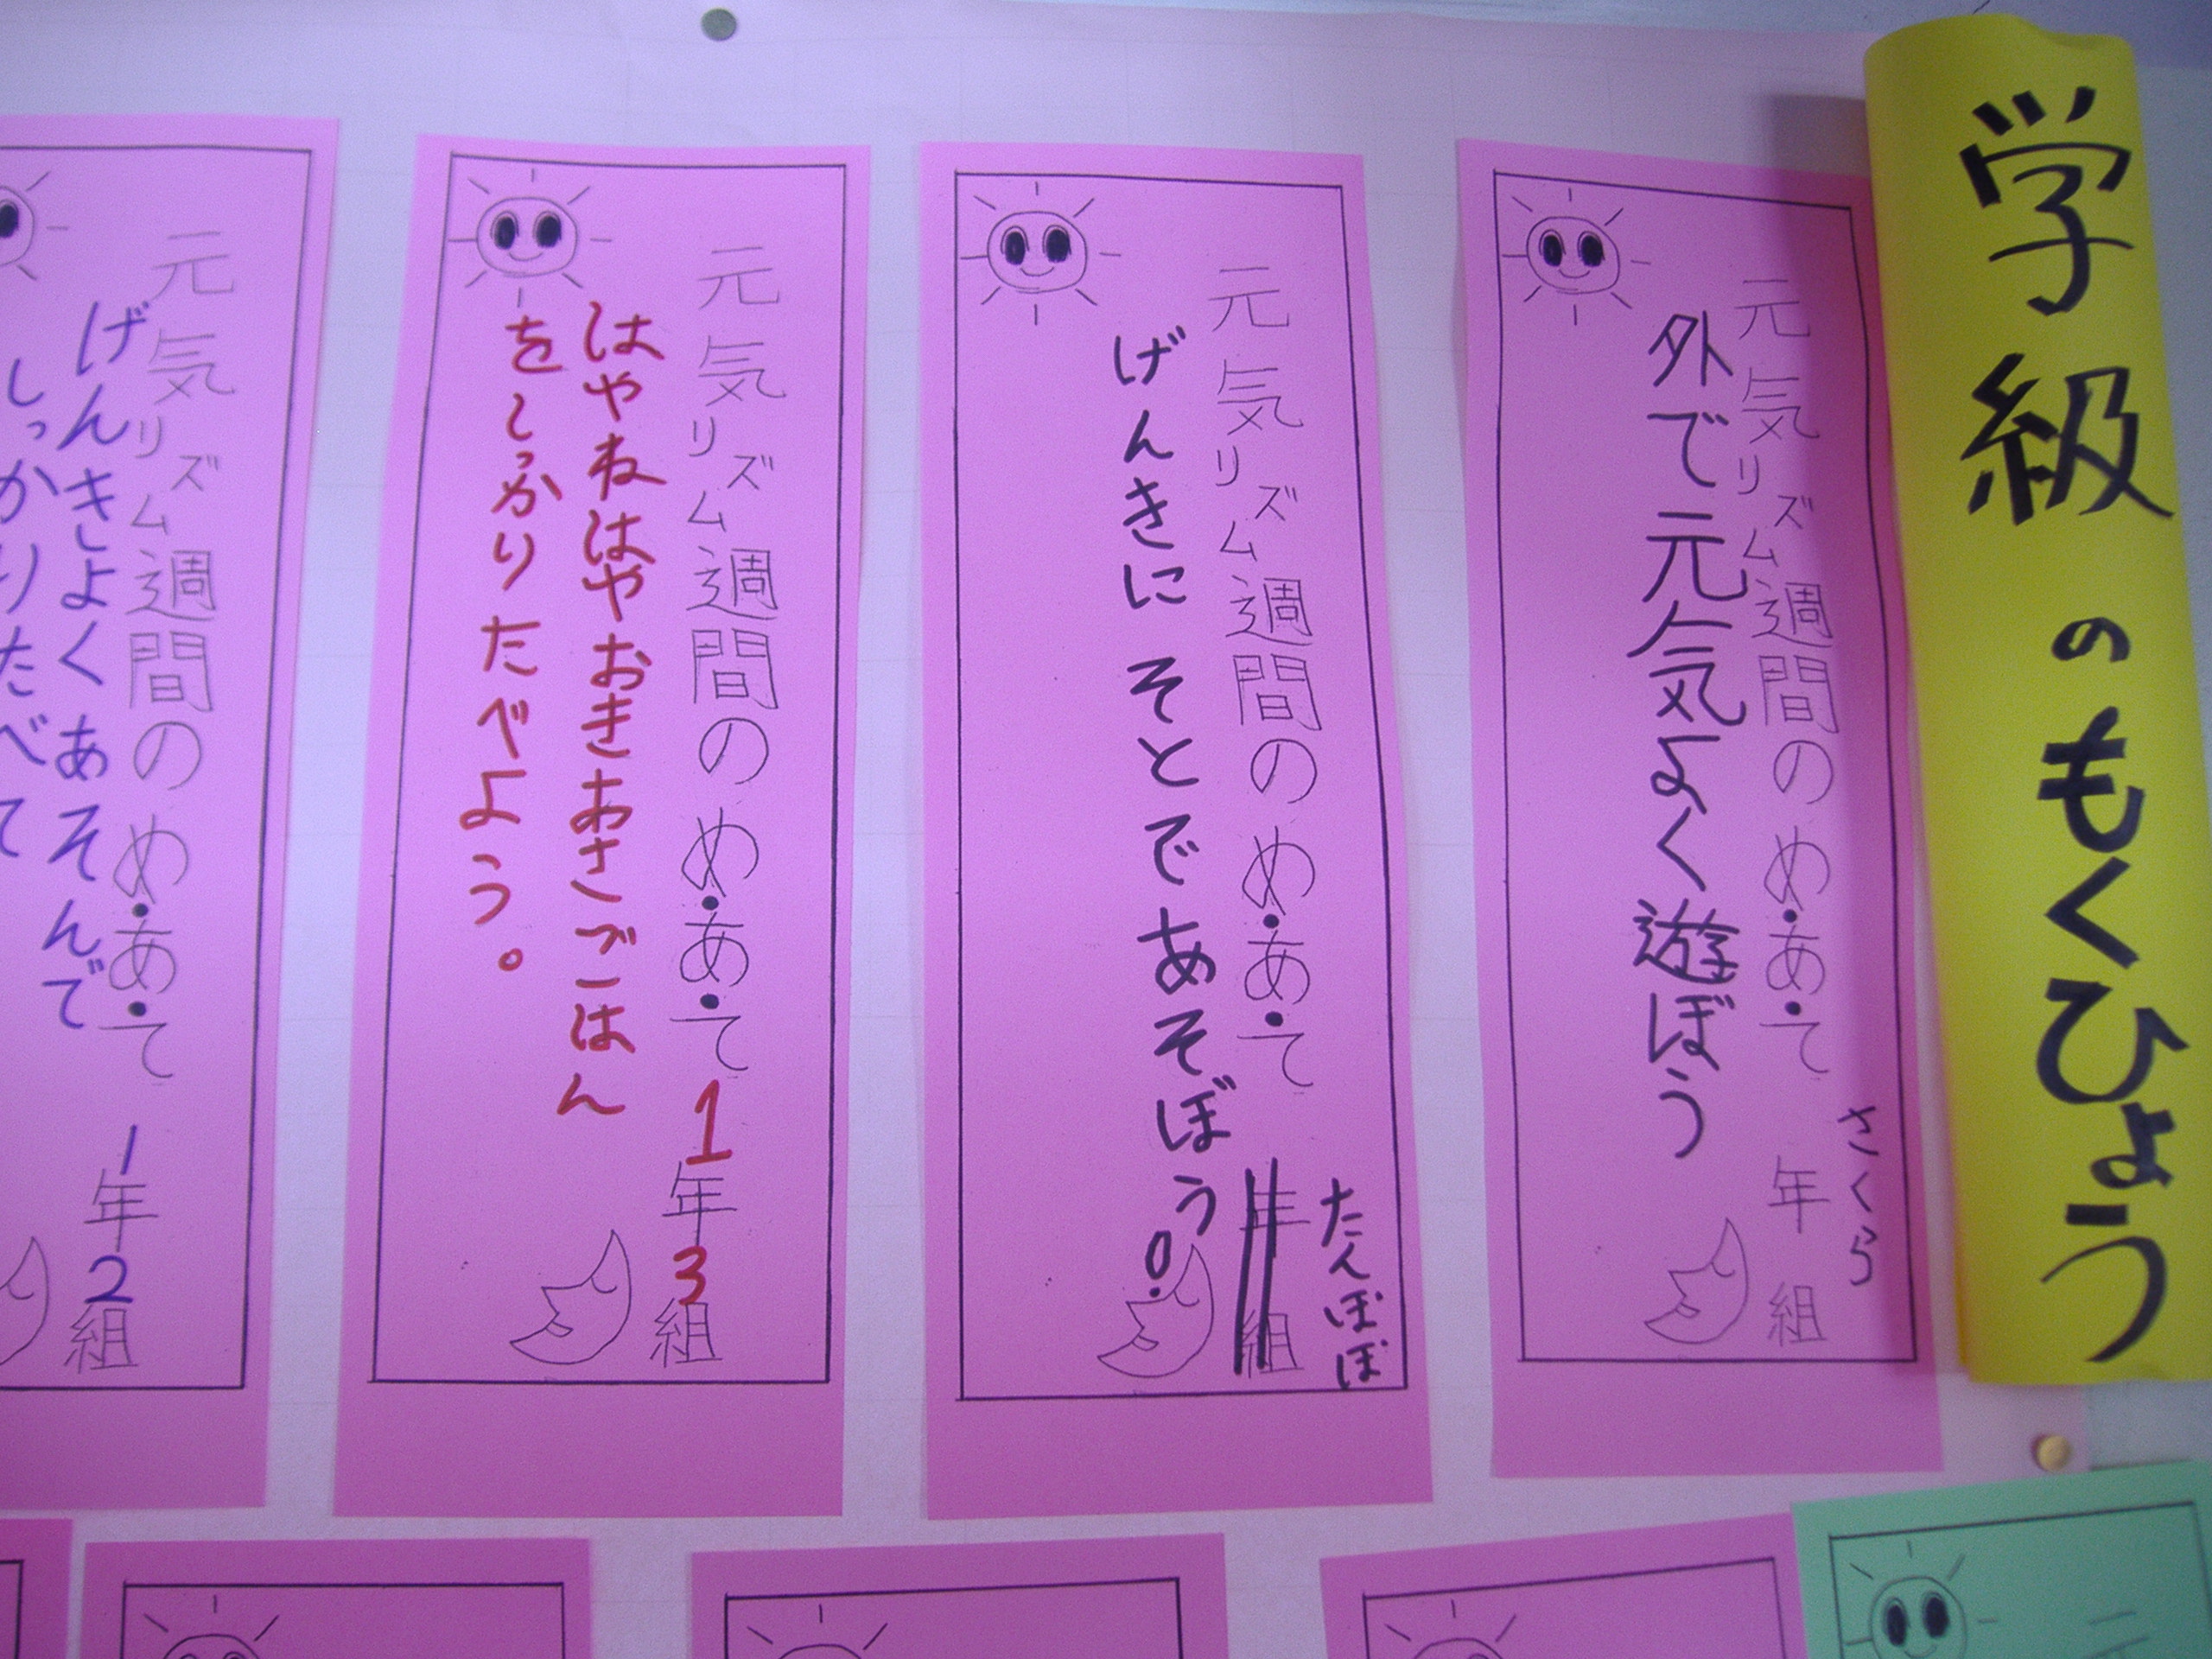 学級のもくひょう
さくら
元気リズム週間のめ・あ・て 年 組
外で元気よく遊ぼう
たんぽぽ
元気リズム週間のめ・あ・て 年 組
げんきに そとで あそぼう!
元気リズム週間のめ・あ・て 1年3組
はやねはやおきあさごはん
をしっかりたべよう。
元気リズム週間のめ・あ・て 1年2組
げんきよく あそんで
しっかりたべて
元